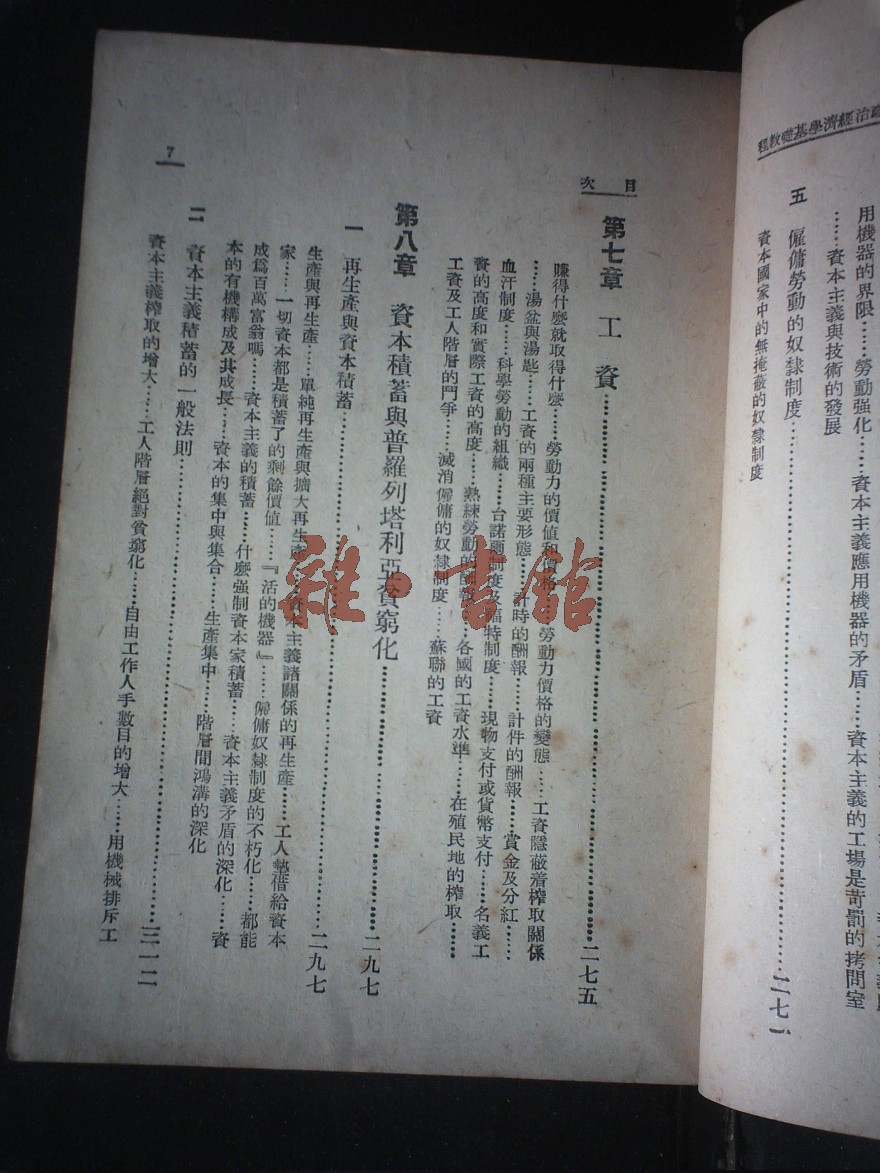 治經濟學基礎教程
用機器的界限……勞動強化……資本主義應用機器的矛盾……資本主義的工場是苛罰的拷問室
……資本主義與技術的發展
五 僱傭勞動的奴隸制度……二七一
資本國家中的無掩蔽的奴隸制度
目次
第七章 工資……二七五
賺得什麼就取得什麼……勞動力的價值和價格……勞動力價格的變態……工資隱蔽着榨取關係
……湯盆與湯匙……工資的兩種主要形態……計時的酬報……計件的酬報……賞金及分紅……
血汗制度……科學勞動的組織……台諾爾制度及福特制度……現物支付或貨幣支付……名義工
資的高度和實際工資的高度……熟練勞動的酬報……各國的工資水準……在殖民地的榨取……
工資及工人階層的鬥爭……滅消僱傭的奴隸制度……蘇聯的工資
第八章 資本積蓄與普羅列塔利亞貧窮化……二九七
一 再生產與資本積蓄……二九七
生產與再生產……單純再生產與擴大再生產……資本主義諸關係的再生產……工人墊借給資本
家……一切資本都是積蓄了的剩餘價值……『活的機器』……僱傭奴隸制度的不朽化……都能
成爲百萬富翁嗎……資本主義的積蓄……什麼強制資本家積蓄……資本主義矛盾的深化……資
本的有機構成及其成長……資本的集中與集合……生產集中……階層間鴻溝的深化
二 資本主義積蓄的一般法則……三一二
資本主義榨取的增大……工人階層絕對貧窮化……自由工作人手數目的增大……用機械排斥工
7
雜·書館